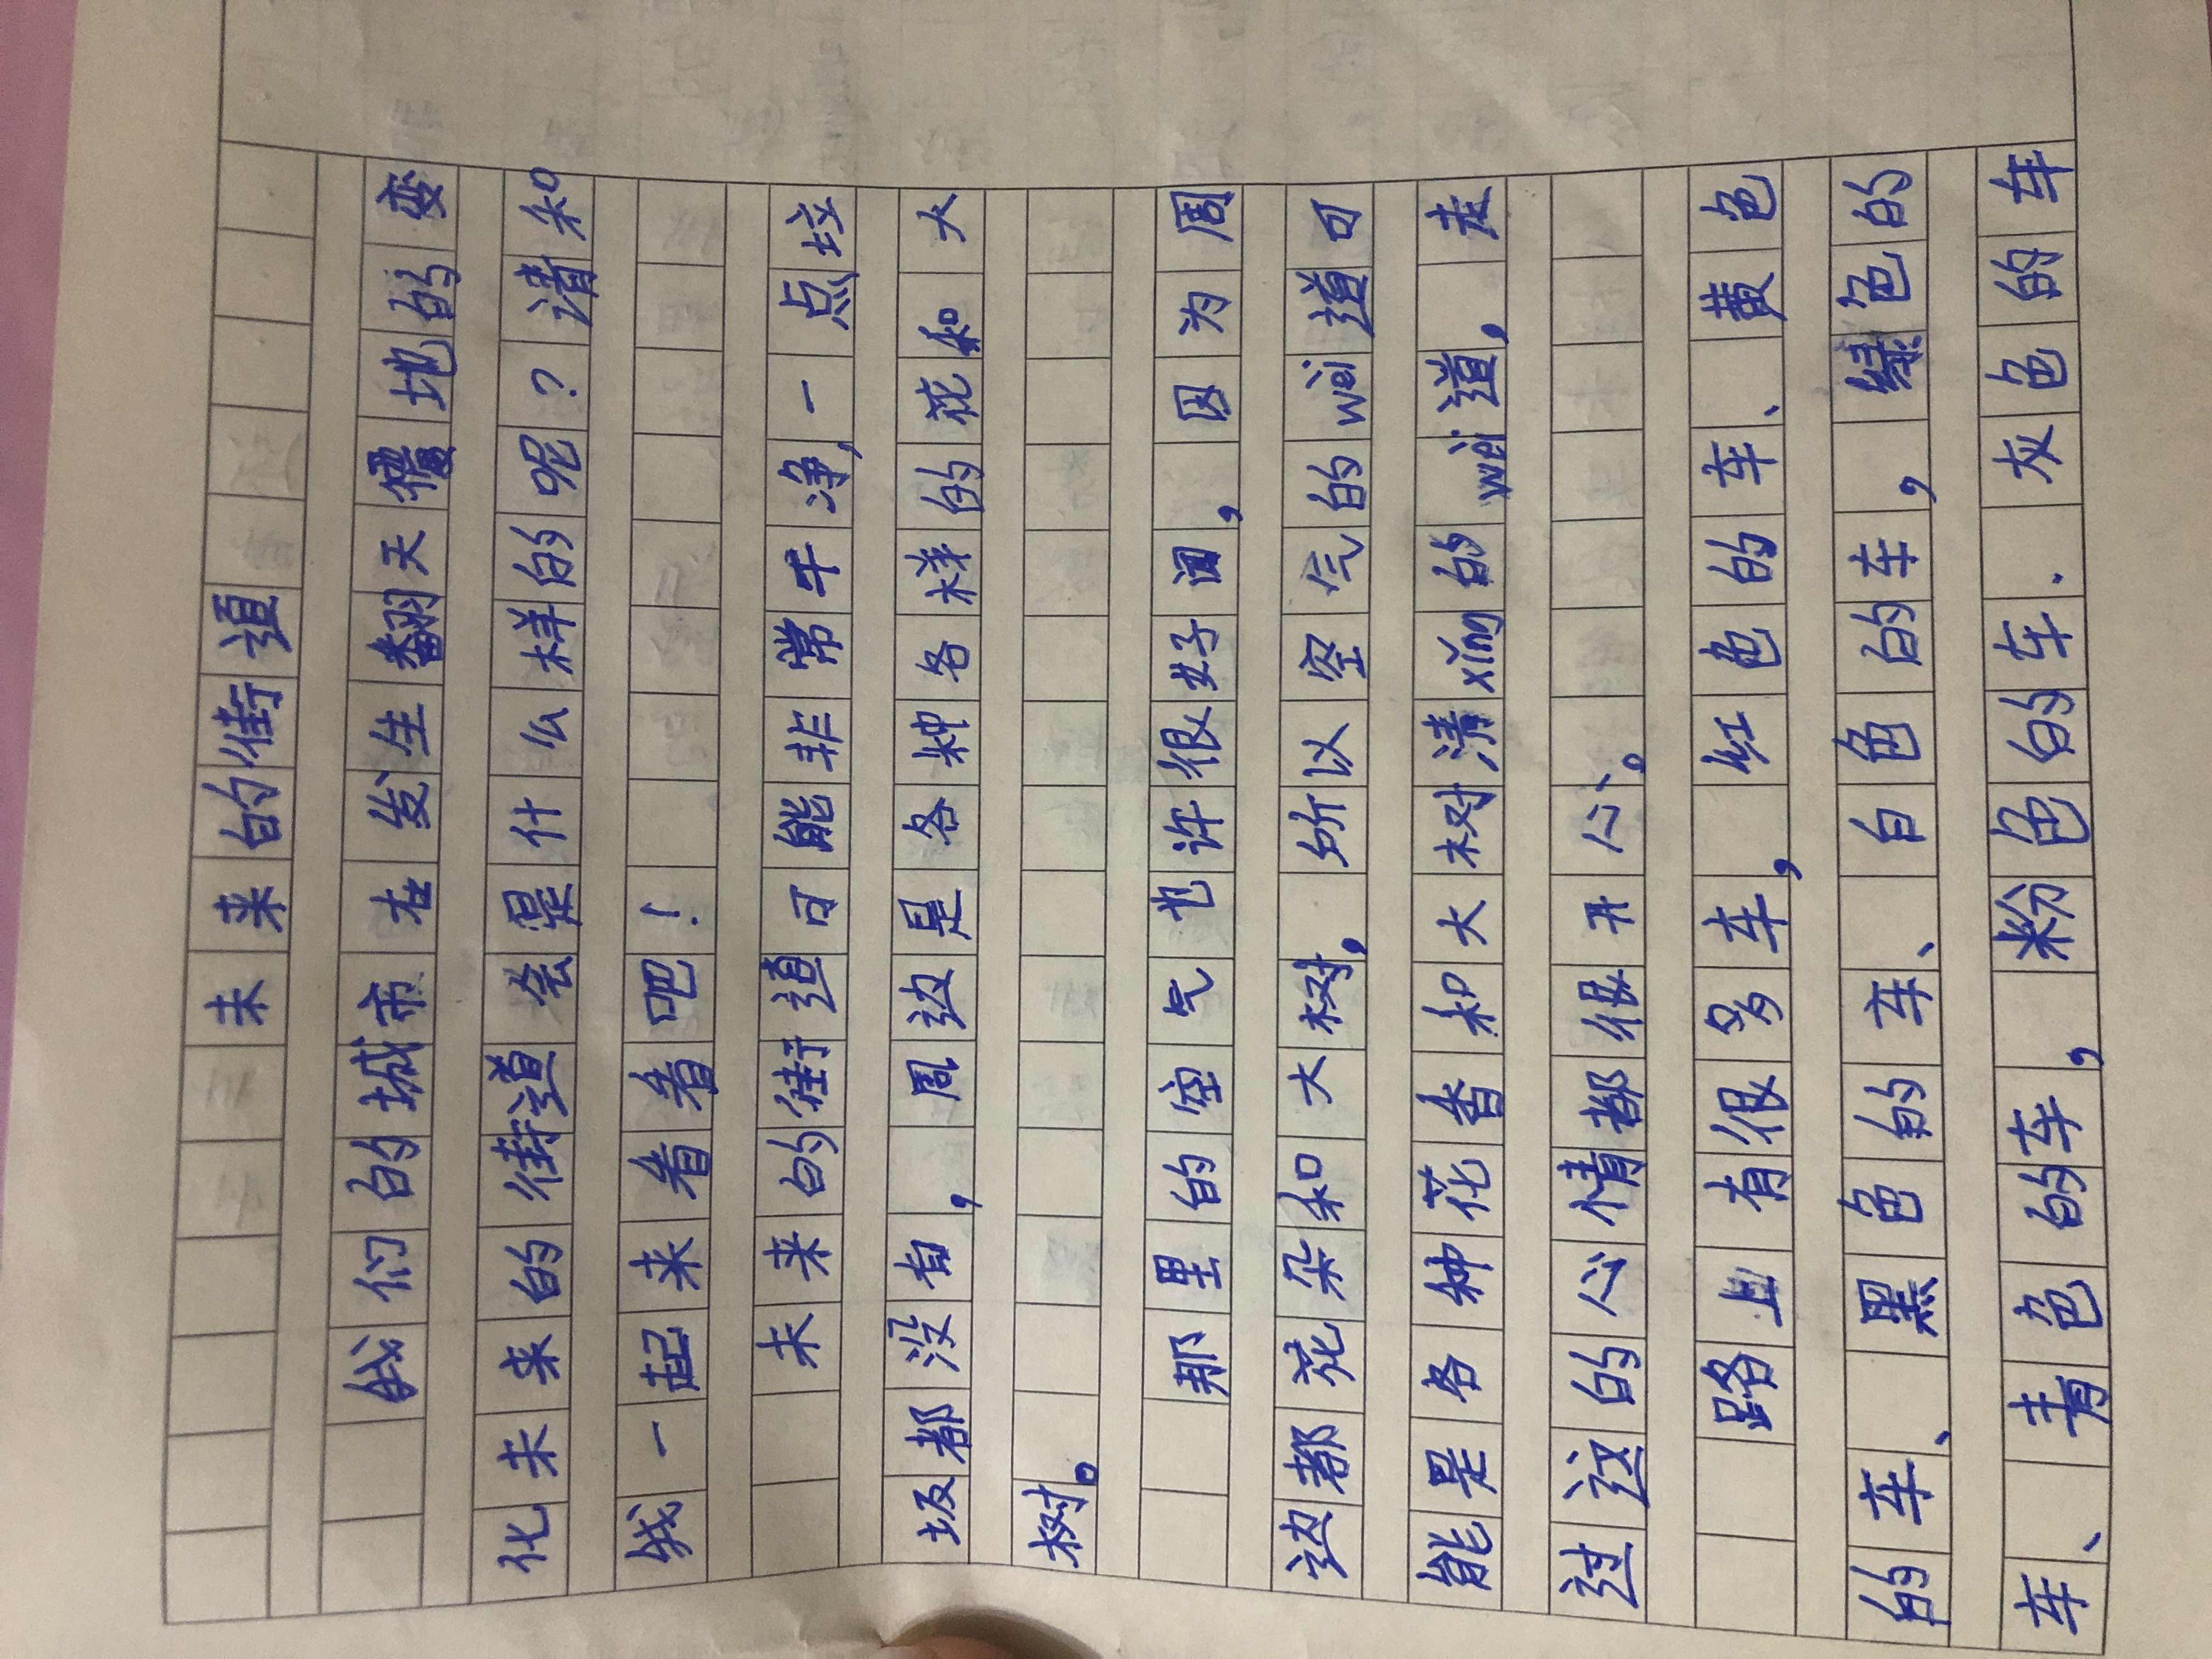 未来的街道
我们的城市在发生翻天覆地的变
化未来的街道会是什么样的呢？请和
我一起来看看吧！
未来的街道可能非常干净，一点垃
圾都没有，周边是各种各样的花和大
树。
那里的空气也许很好闻，因为周
边都花朵和大树，所以空气的wèi道可
能是各种花香和大树清xīng的wèi道，走
过这的心情都很开心。
路上有很多车，红色的车、黄色
的车、黑色的车、白色的车，绿色的
车、青色的车，粉色的车．灰色的车